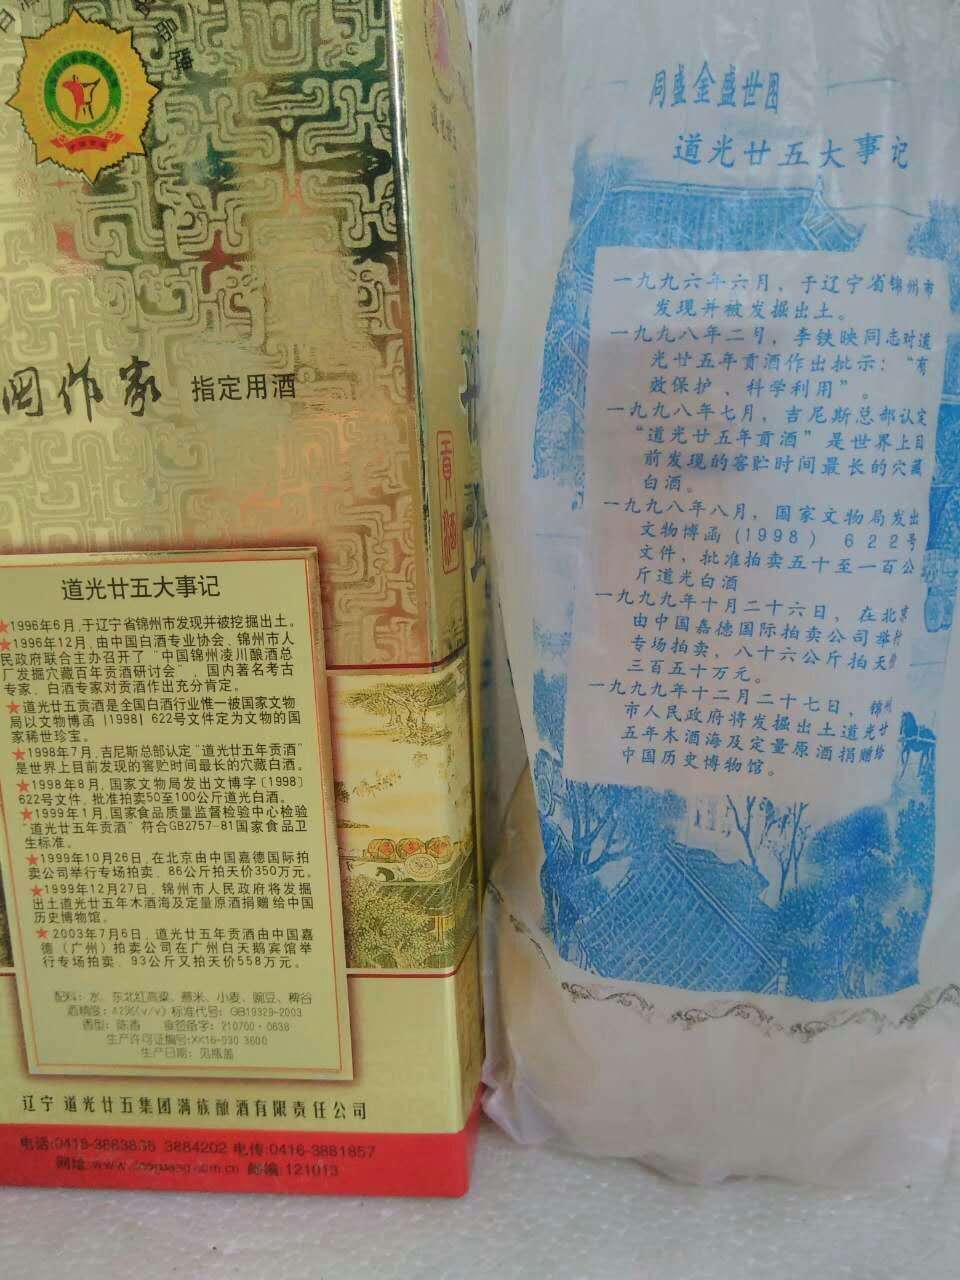 作家 指定用酒
贡酒
道光廿五大事记
★1996年6月,于辽宁省锦州市发现并被挖掘出土.
★1996年12月,由中国白酒专业协会、锦州市人
民政府联合主办召开了“中国锦州凌川酿酒总
厂发掘穴藏百年贡酒研讨会”,国内著名考古
专家、白酒专家对贡酒作出充分肯定。
★道光廿五贡酒是全国白酒行业惟一被国家文物
局以文物博函[1998]622号文件定为文物的国
家稀世珍宝。
★1998年7月,吉尼斯总部认定“道光廿五年贡酒”
是世界上目前发现的窖贮时间最长的穴藏白酒。
★1998年8月,国家文物局发出文博字〔1998〕
622号文件,批准拍卖50至100公斤道光白酒。
★1999年1月,国家食品质量监督检验中心检验
“道光廿五年贡酒”符合GB2757-81国家食品卫
生标准。
★1999年10月26日,在北京由中国嘉德国际拍
卖公司举行专场拍卖、86公斤拍天价350万元。
★1999年12月27日、锦州市人民政府将发掘
出土道光廿五年木酒海及定量原酒捐赠给中国
历史博物馆。
★2003年7月6日,道光廿五年贡酒由中国嘉
德(广州)拍卖公司在广州白天鹅宾馆举
行专场拍卖、93公斤又拍天价558万元。
配料:水、东北红高粱、薏米、小麦、豌豆、稗谷
酒精度:42%(v/v) 标准代号:GB19329-2003
香型:陈酒 食签备字:210700·0638
生产许可证编号:XK16-030 3600
生产日期:见瓶盖
辽宁 道光廿五集团满族酿酒有限责任公司
3884202 电传:0416-3881857
邮编:121013
同盛金盛世图
道光廿五大事记
一九九六年六月,于辽宁省锦州市
发现并被发掘出土。
一九九八年二月,李铁映同志对道
光廿五年贡酒作出批示:“有
效保护、科学利用”。
一九九八年七月,吉尼斯总部认定
“道光廿五年贡酒”是世界上目
前发现的窖贮时间最长的穴藏
白酒。
一九九八年八月,国家文物局发出
文物博函(1998)622号
文件,批准拍卖五十至一百公
斤道光白酒
一九九九年十月二十六日,在北京
由中国嘉德国际拍卖公司举行
专场拍卖,八十六公斤拍天价
三百五十万元。
一九九九年十二月二十七日,锦州
市人民政府将发掘出土道光廿
五年木酒海及定量原酒捐赠给
中国历史博物馆。